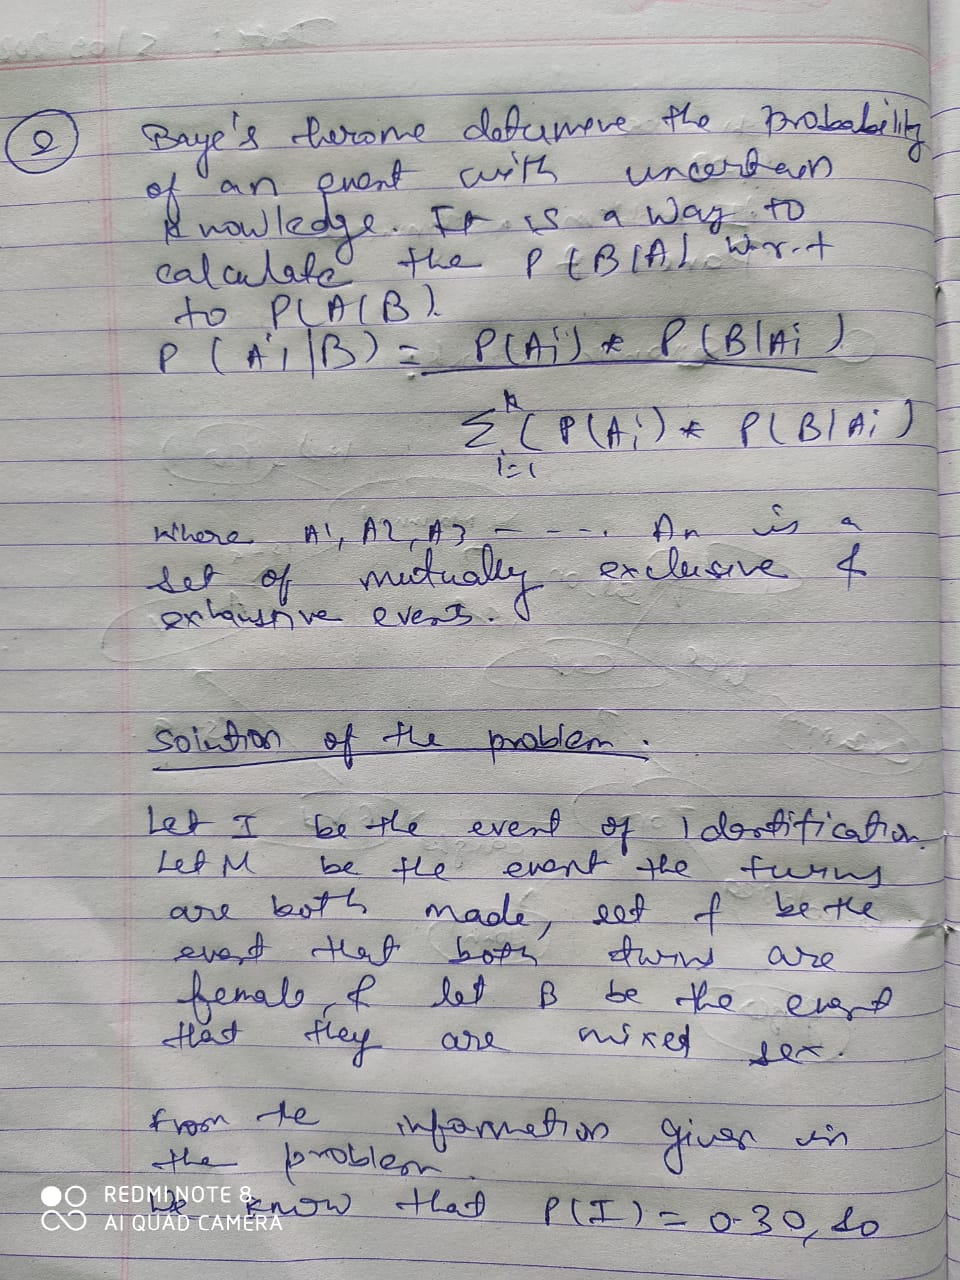 2
Baye's therome detumeve the probability
of an event with uncertain
knowledge. It is a way to
calculate the P(B|A) w.r.t
to P(A|B).
P(Ai|B) = P(Ai) * P(B|Ai)
k
Σ (P(Ai) * P(B|Ai)
i=1
where A1, A2, A3 ----. An is a
set of mutually exclusive &
exhaustive events.
Solution of the problem.
Let I be the event of Identification.
Let M be the event the twins
are both made, let f be the
event that both twins are
female, & let B be the event
that they are mixed sex.
From the information given in
the problem.
We know that P(I) = 0.30, so
REDMI NOTE 8
AI QUAD CAMERA